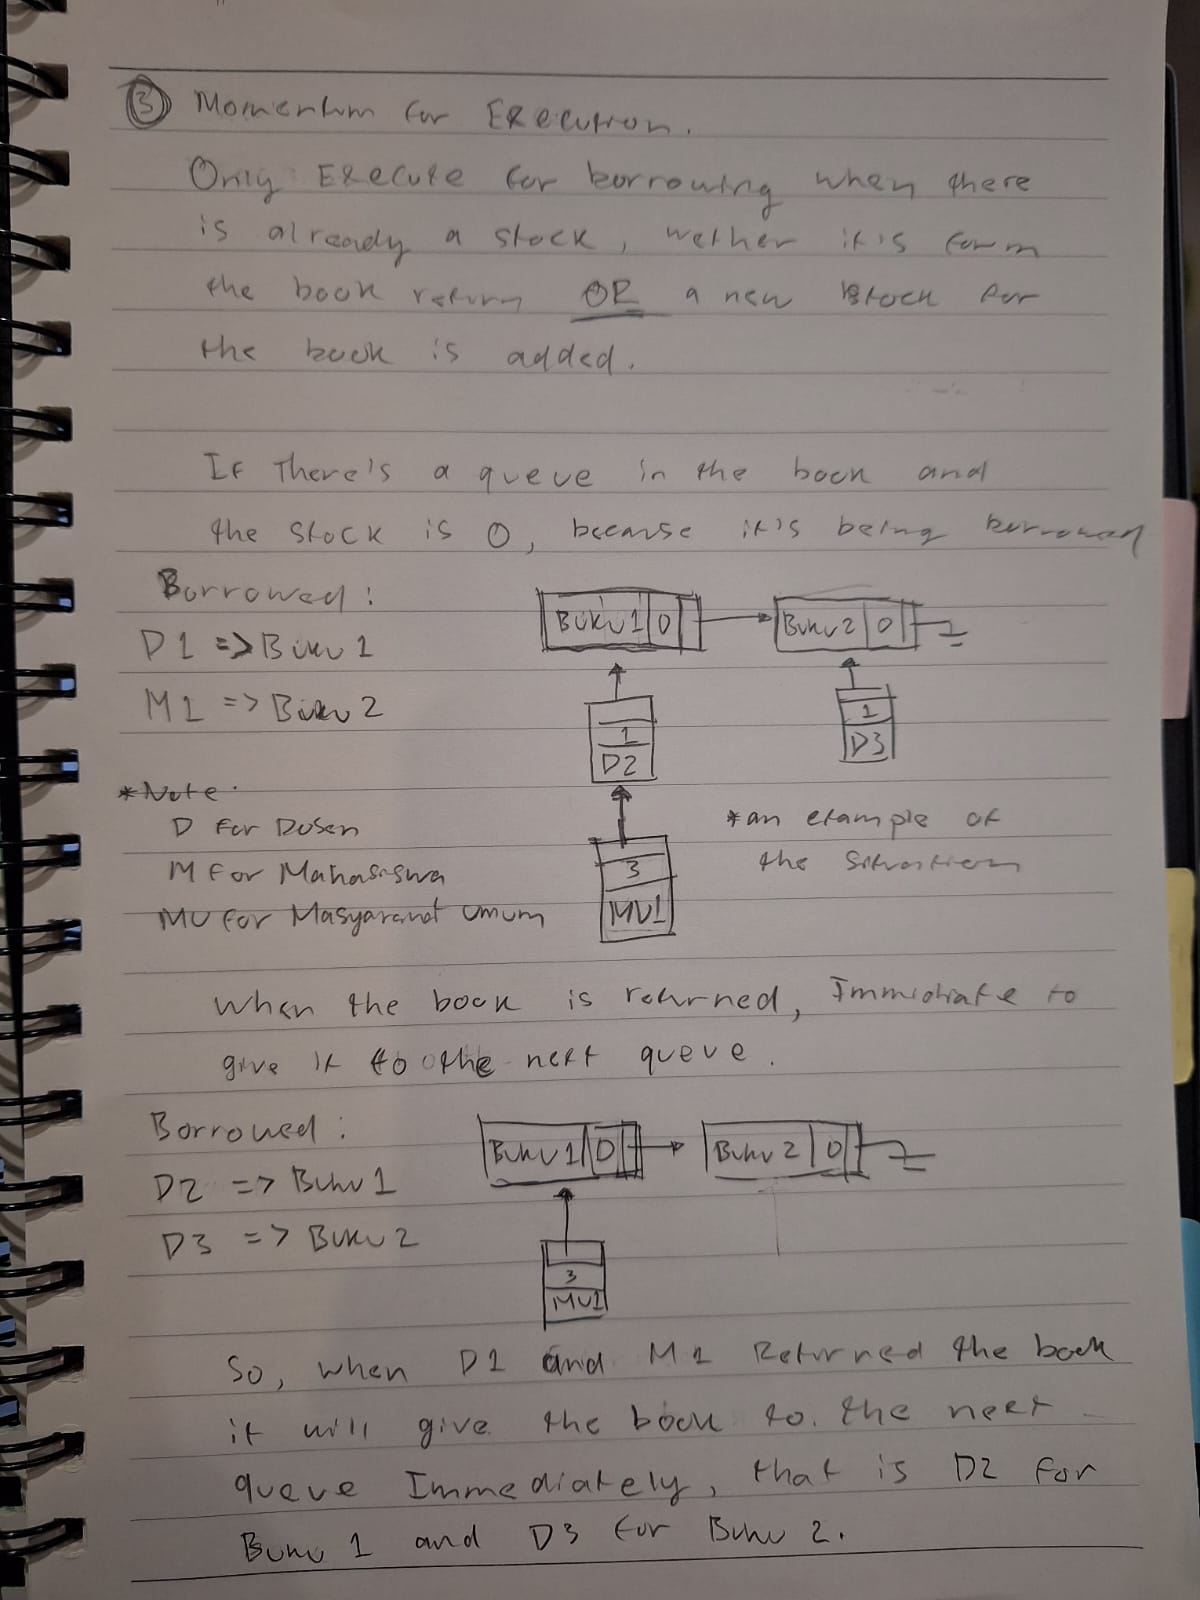 3 Momentum for Execution.
Only Execute for borrowing when there
is already a stock, wether it's form
the book return OR a new stock for
the book is added.
If There's a queue in the book and
the stock is 0, because it's being borrowed
Borrowed :
D1 => Buku 1
M1 => Buku 2
Buku 1 0
Buku 2 0
1
D2
1
D3
3
MU1
*Note :
D for Dosen
M For Mahasiswa
MU for Masyarakat Umum
*an example of
the situation
When the book is returned, Immidiate to
give it to the next queue.
Borrowed :
D2 => Buku 1
D3 => Buku 2
Buku 1 0
Buku 2 0
3
MU1
So, when D1 and M1 Returned the book
it will give the book to the next
queue Immediately, that is D2 for
Buku 1 and D3 for Buku 2.